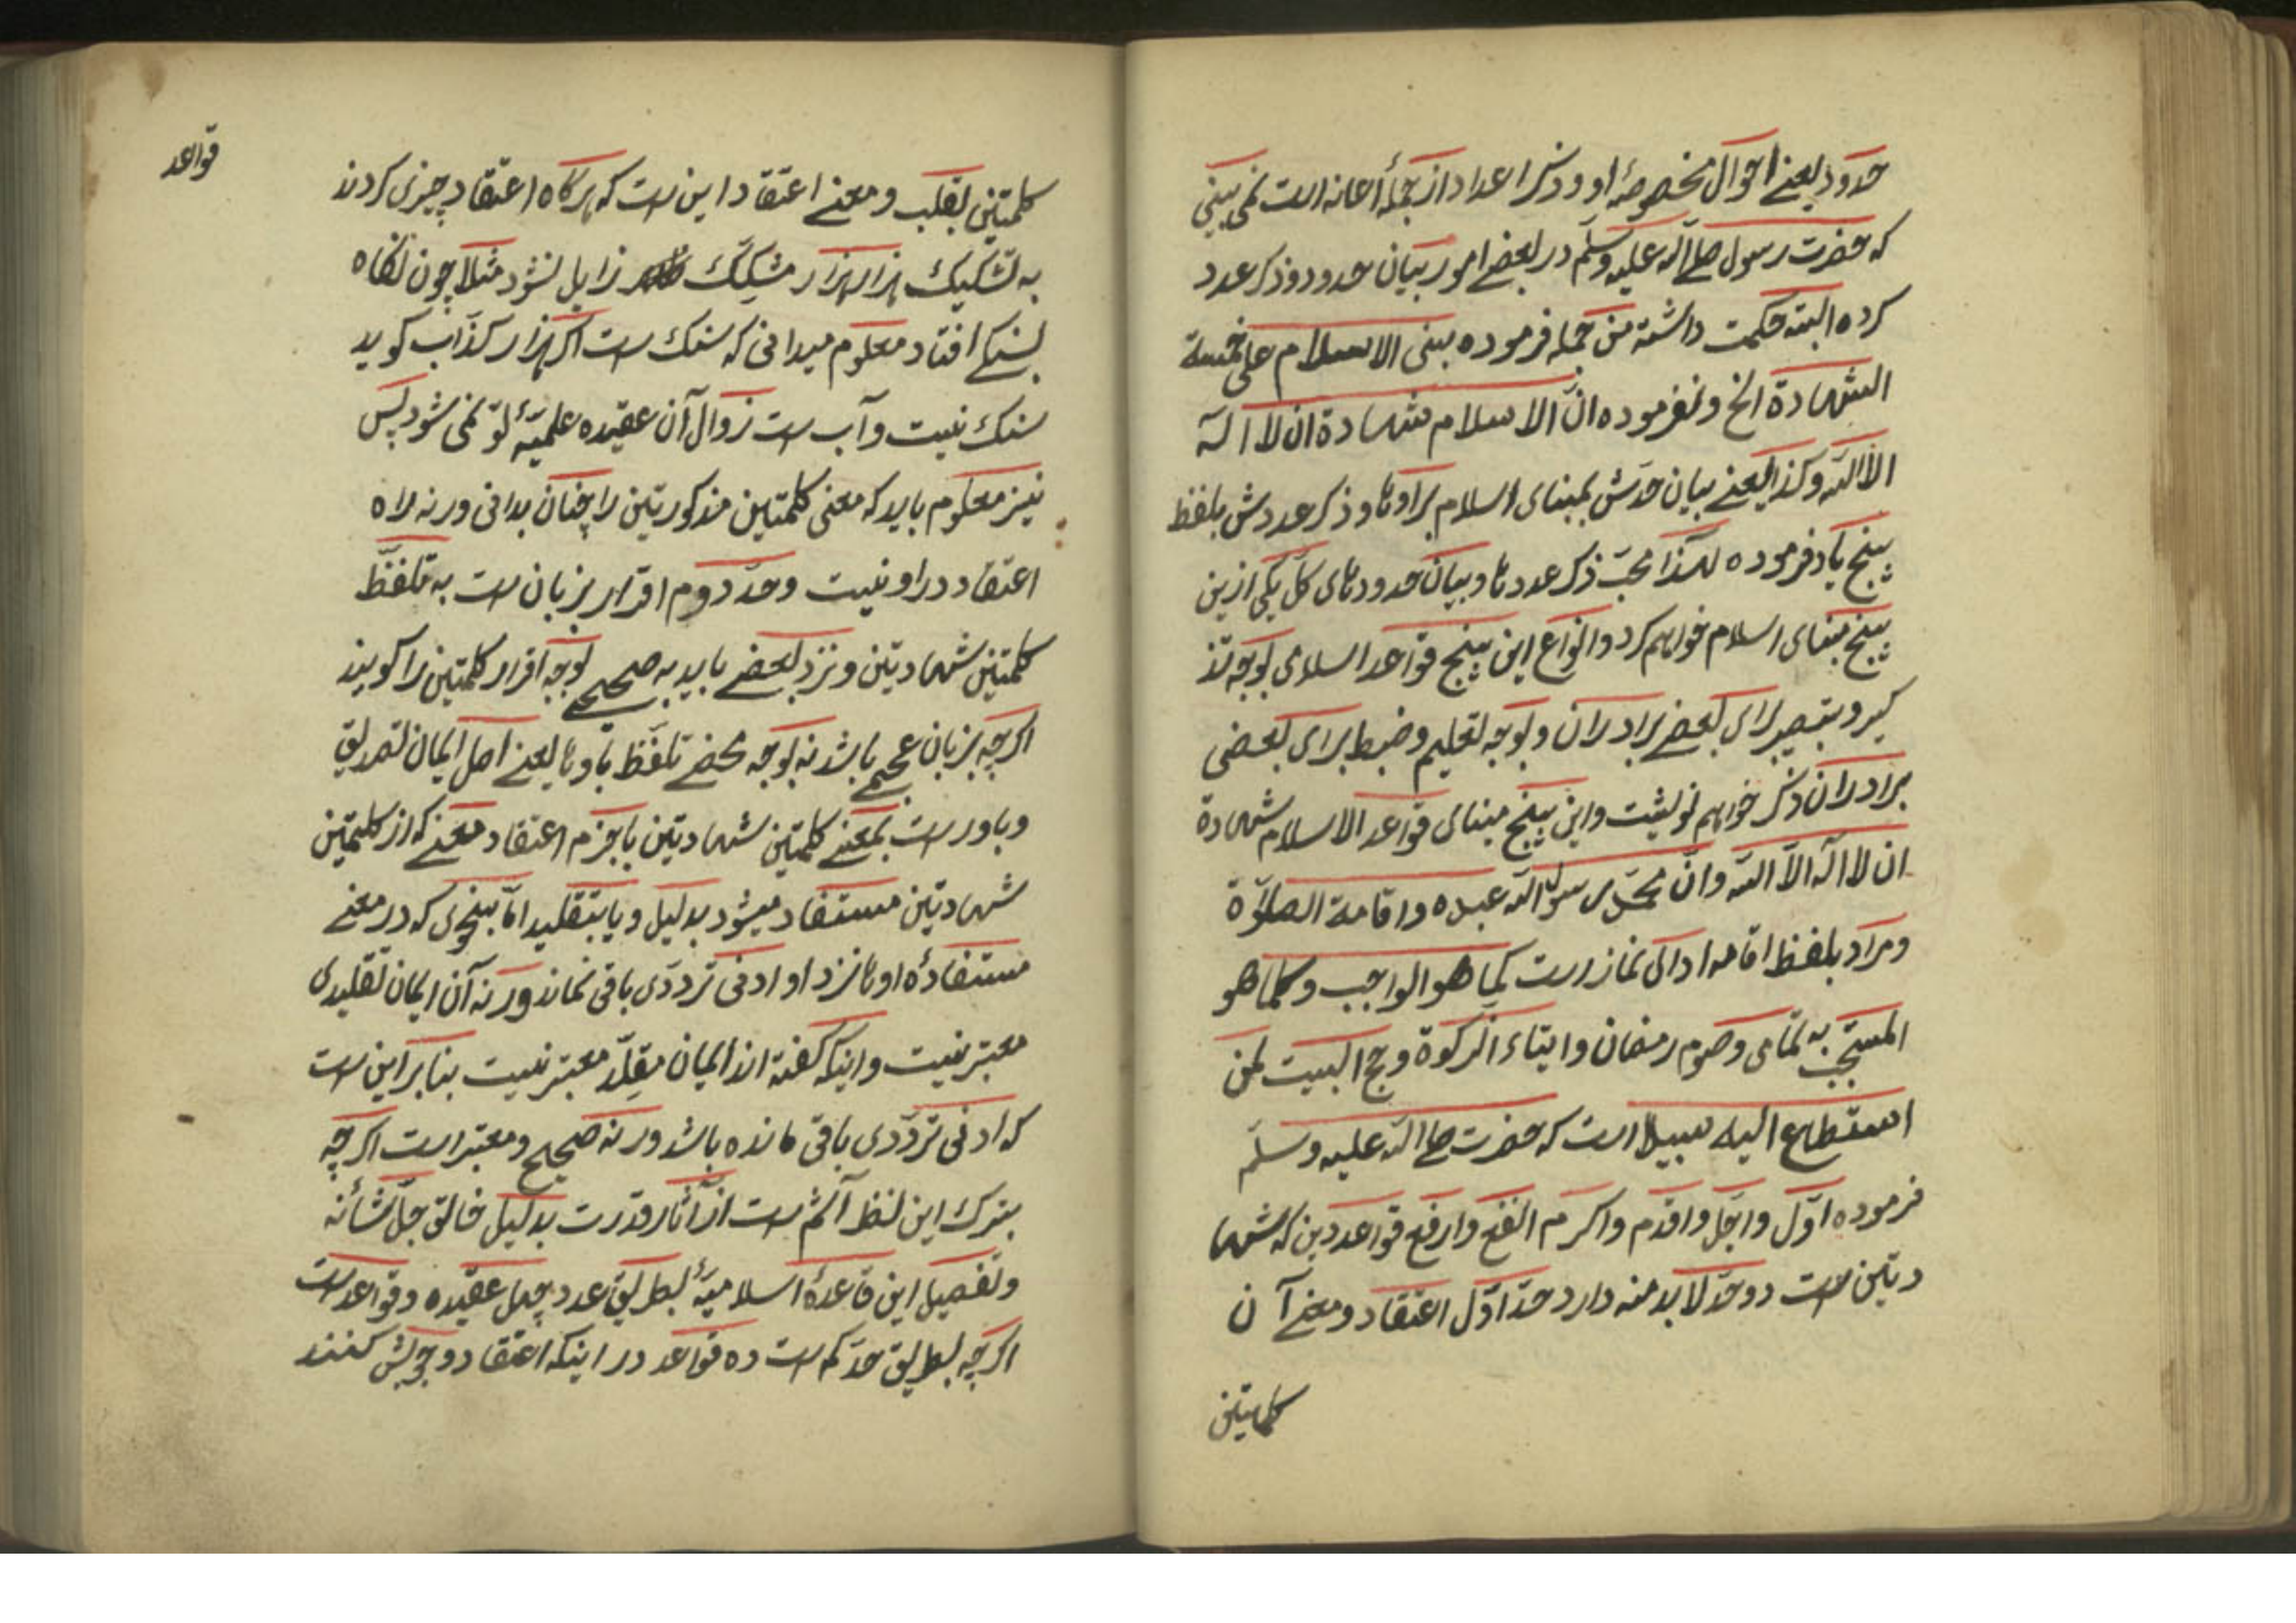 حدود یعنے احوال مخصوصهٔ او و ذکر اعداد از جملهٔ اعانه است نمی بینی
که حضرت رسول صلے اللّه علیه وسلّم در بعضے امور بیان حدود و ذکر عدد
کرده البته حکمت داشته من جمله فرموده بنی الاسلام علی خمسة
الشهادة الخ و نفرموده انّ الاسلام شهادة ان لا اله
الّا اللّه وکذا یعنے بیان حدّش بمبنای اسلام برا و ذکر عددش بلفظ
پنج یاد فرموده لهذا محبّ ذکر عددها و بیان حدودهای کلّ یکی ازین
پنج مبنای اسلام خواهم کرد و انواع این پنج قواعد اسلامی بوجه تذ
کیر و تبصیر برای بعضے برادران و بوجه تعلیم و ضبط برای بعضی
برادران ذکر خواهم نوشت و این پنج مبنای قواعد الاسلام شهادة
ان لا اله الّا اللّه وانّ محمّد رسول اللّه عبده واقامة الصلوٰة
ومراد بلفظ اقامه ادای نماز است کما هو الواجب وکما هو
المستحبّ به تمامی وصوم رمضان وایتاء الزکوة وحج البیت لمن
استطاع الیه سبیلا است که حضرت صلے اللّه علیه وسلّم
فرموده اوّل واجلّ واقدم واکرم انفع وارفع قواعد دین که شها
دتین است دو حدّ لابد منه دارد حدّ اوّل اعتقاد و معنے آن
کلمتین
کلمتین بقلب و معنے اعتقاد این است که هرگاه اعتقاد چیزی کردند
به تشکیک هزار هزار مشکّک زایل نشود مثلا چون نگاه
بسنگے افتاد معلوم میدانی که سنک است اگر هزار کذّاب گوید
سنک نیست و آب است زوال آن عقیده علمیّهٔ تو نمی شود پس
نیز معلوم باید که معنی کلمتین مذکورتین را چنان بدانی ورنه راه
اعتقاد در او نیست وحدّ دوم اقرار بزبان است به تلفّظ
کلمتین شهادتین و نزد بعضے باید به صحیحے بوجه اقرار کلمتین را گویند
اگرچه بزبان عجمے باشد نه بوجه محضے تلفّظ باوها یعنے اصل ایمان تصدیق
وباور است بمعنے کلمتین شهادتین با جزم اعتقاد معنے که از کلمتین
شهادتین مستفاد میشود بدلیل ویا بتقلید امّا بنحوی که در معنے
مستفادهٔ اوها نزد او ادنی تردّدی باقی نماند ورنه آن ایمان تقلیدی
معتبر نیست واینکه گفته اند ایمان مقلِّد معتبر نیست بنا بر این است
که ادنی تردّدی باقی مانده باشد ورنه صحیح و معتبر است اگرچه
بترک این نظر آثم است از آثار قدرت بدلیل خالق جلّ شأنه
وتفصیل این قاعدهٔ اسلامیّهٔ بطریق عدد چهل عقیده و قواعد است
اگرچه بطریق حدّ که است ده قواعد در اینکه اعتقاد وجوبش کنند
قواعد